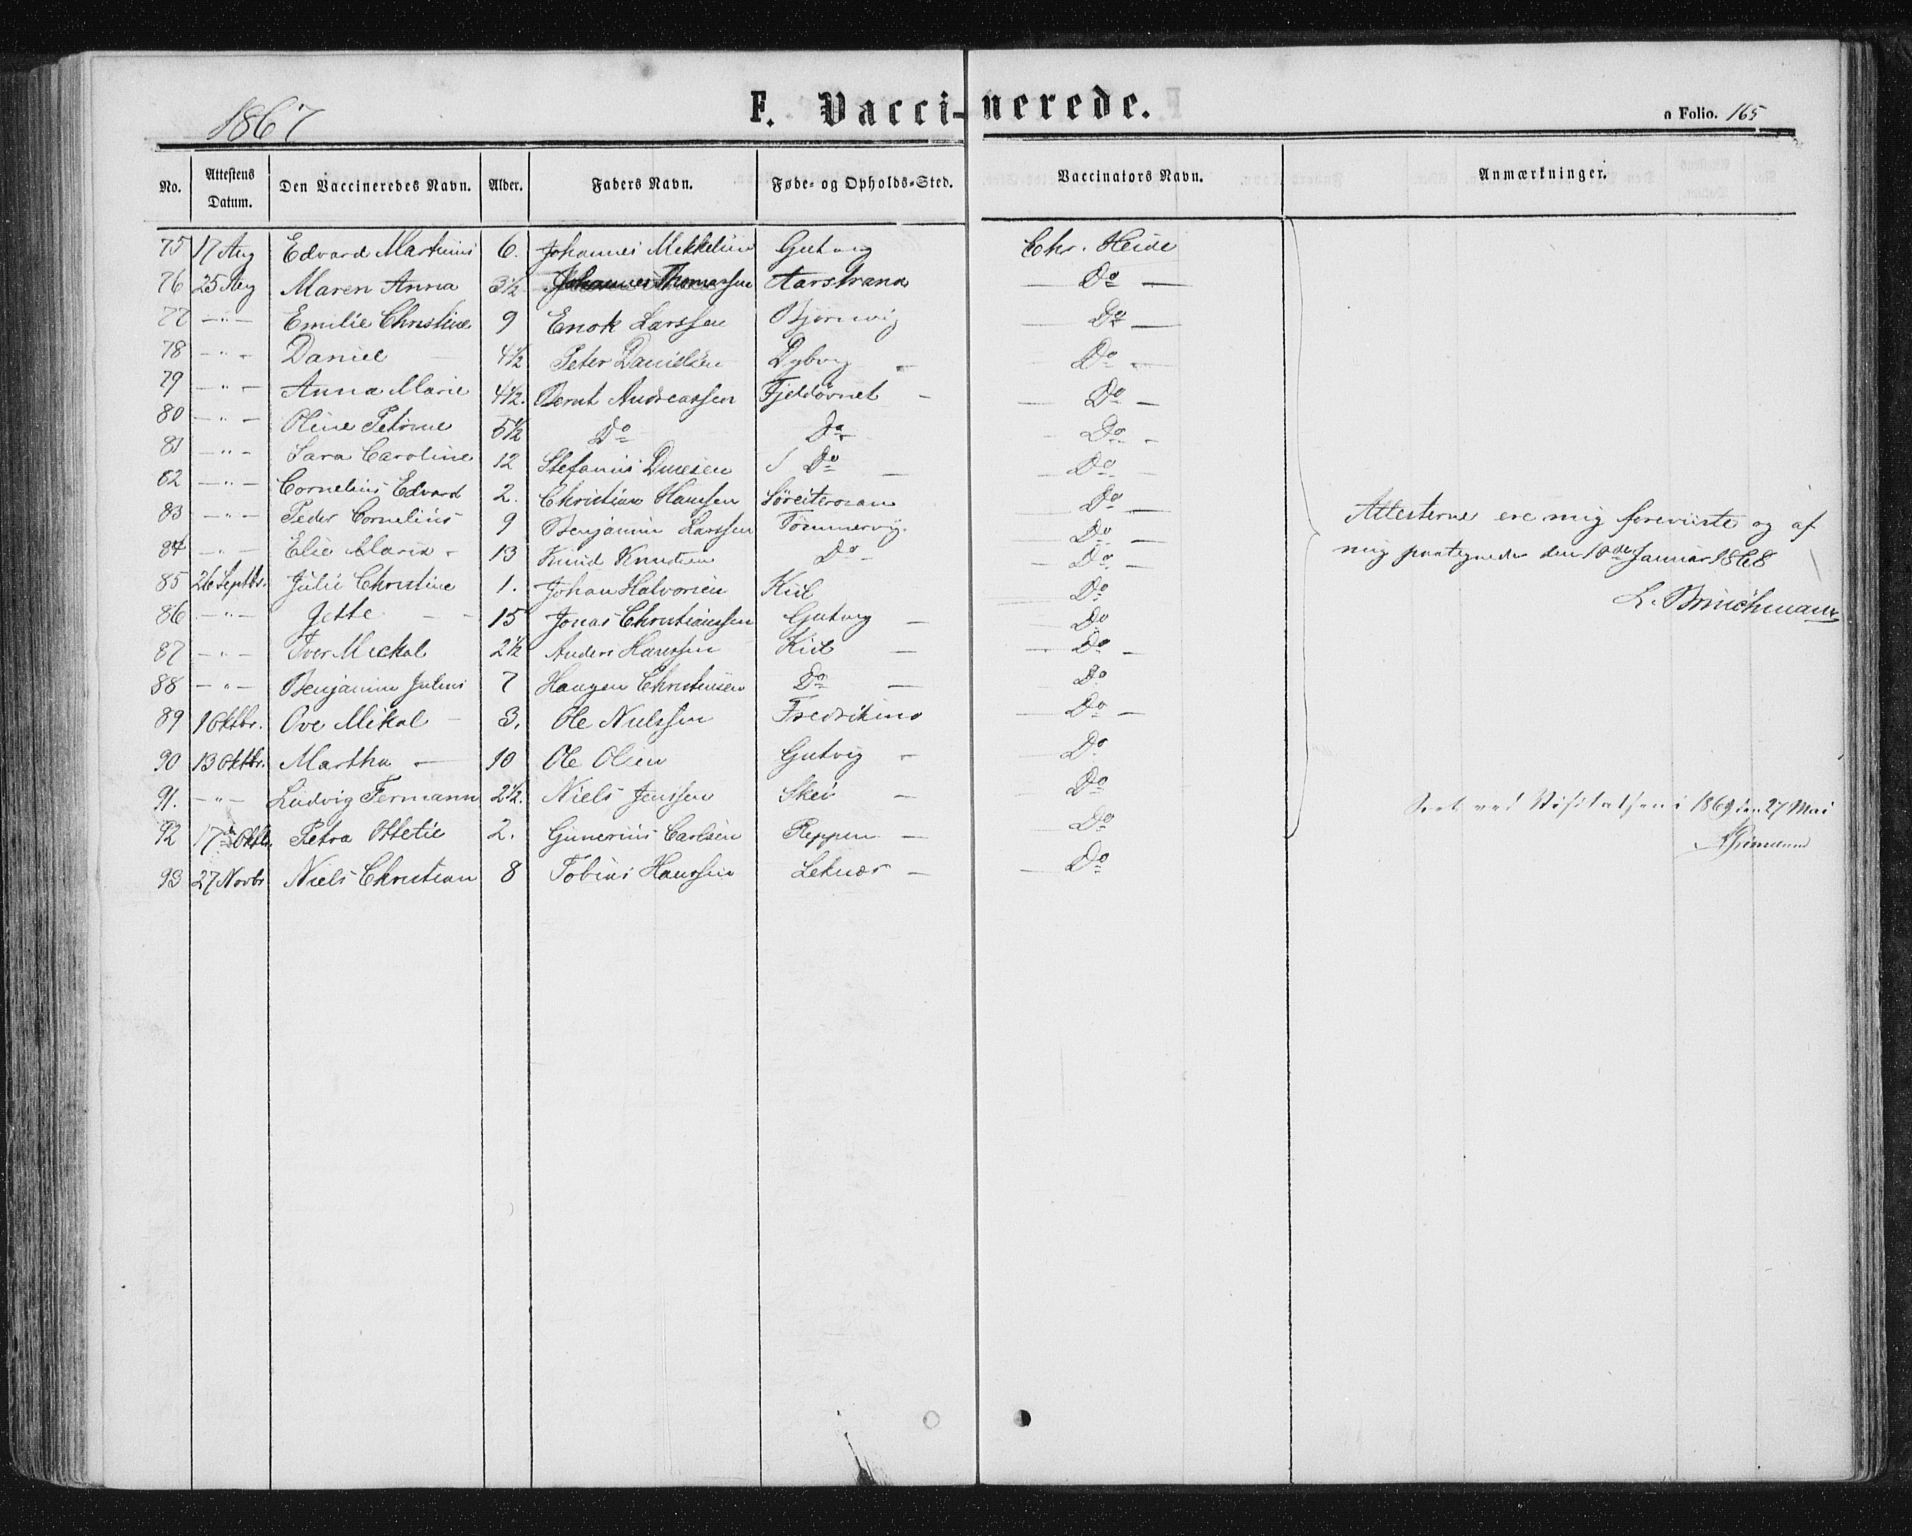 1867 F. Vaccinerede. Folio. 165
No. Attestens Datum. Den Vaccineredes Navn. Alder. Faders Navn. Føde- og Opholds-Sted. Vaccinators Navn. Anmærkninger.
75 17 Aug Edvard Martinus 6. Johannes Mikkelsen Gutvig Chr. Heide
76 25 Aug Maren Anna 3½ Johannes Thomassen Aarstrand — Do —
77 — " — Emilie Christine 9 Enok Larssen Bjørnvig — Do —
78 — " — Daniel — 4½ Peter Danielsen Dybvig — — Do —
79 — " — Anna Marie 4½. Bernt Andreassen Fjeldøvnet — — Do —
80 — " — Oline Petrine 5½ Do Do — Do —
81 — " — Sara Caroline 12 Stefanus Do — — Do —
82 — " — Cornelius Edvard 2. Christian Hanssen — Do —
83 — " — Peder Cornelius 9 Benjamin Larssen Tømmervig. — Do —
84 — " — Elie Maria - 13 Knud Knudsen Do — — Do —
85 26 Septbr. Julie Christine 1. Johan Halvorsen Kiil — Do
86 — " — Jette — — 15 Jonas Christianssen Gutvig — Do
87 — " — Iver Mickal 2½ Anders Hanssen Kiil — — Do —
88 — " — Benjamin Julius 7 Christensen Do — Do
89 1 Oktbr. Ove Mikal — 3. Ole Nielssen — Do —
90 13 Oktbr. Martha — 10 Ole Olsen Gutvig — — Do
91. — " — Ludvig Fermann 2½. Niels Jenssen Skei — — Do
92 17de Oktb. Petra Ottetie 2. Gunerius Carlsen Reppen — — Do
93 27 Novbr Niels Christian 8 Tobias Hanssen Leknæs — — Do
Attesterne ere mig foreviiste og af
mig paategnede den 10de Januar 1868
L. Brinchmann
Seet ved Visitatsen i 1869 den 27 Mai